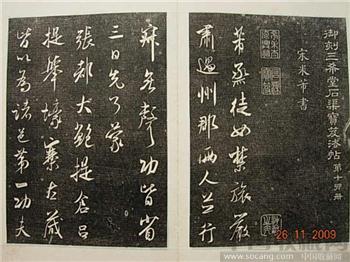 御刻三希堂石渠寶笈法帖 第十 册
宋米芾書
芾烝徒如禁旅嚴
肅過州郡兩人並行
寂無聲功皆省
三日先了蒙
張都大鮑提倉呂
提舉壕寨左藏
皆以為諸邑第一功夫
26 11 2009
中国收藏网
www.socang.com